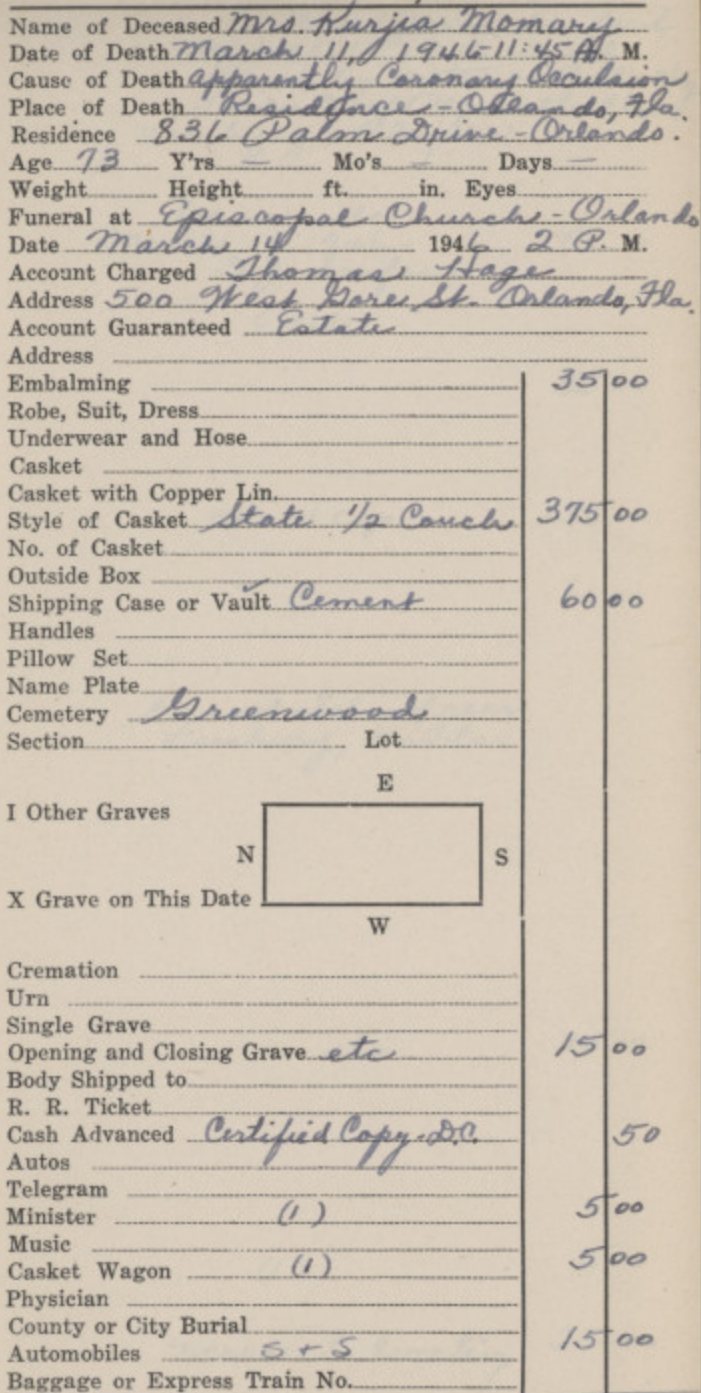 Name of Deceased Mrs. Kurjia Momary
Date of Death March 11, 1946 - 11:45 A. M.
Cause of Death apparently Coronary Occulsion
Place of Death Residence - Orlando, Fla.
Residence 836 Palm Drive - Orlando.
Age 73 Y'rs — Mo's — Days —
Weight Height ft. in. Eyes
Funeral at Episcopal Church - Orlando
Date March 14 1946 2 P. M.
Account Charged Thomas Hage
Address 500 West Gore St. Orlando, Fla.
Account Guaranteed Estate
Address
Embalming 35 00
Robe, Suit, Dress
Underwear and Hose
Casket
Casket with Copper Lin.
Style of Casket State 1/2 Couch 375 00
No. of Casket
Outside Box
Shipping Case or Vault Cement 60 00
Handles
Pillow Set
Name Plate
Cemetery Greenwood
Section Lot
E
I Other Graves
N S
X Grave on This Date
W
Cremation
Urn
Single Grave
Opening and Closing Grave etc 15 00
Body Shipped to
R. R. Ticket
Cash Advanced Certified Copy - D.C. 50
Autos
Telegram
Minister (1) 5 00
Music
Casket Wagon (1) 5 00
Physician
County or City Burial
Automobiles S + S 15 00
Baggage or Express Train No.